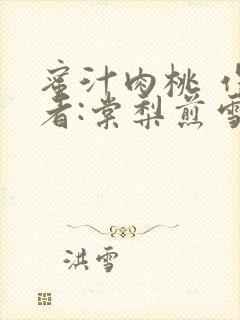 蜜汁肉桃 作
者:棠梨煎雪
洪雪